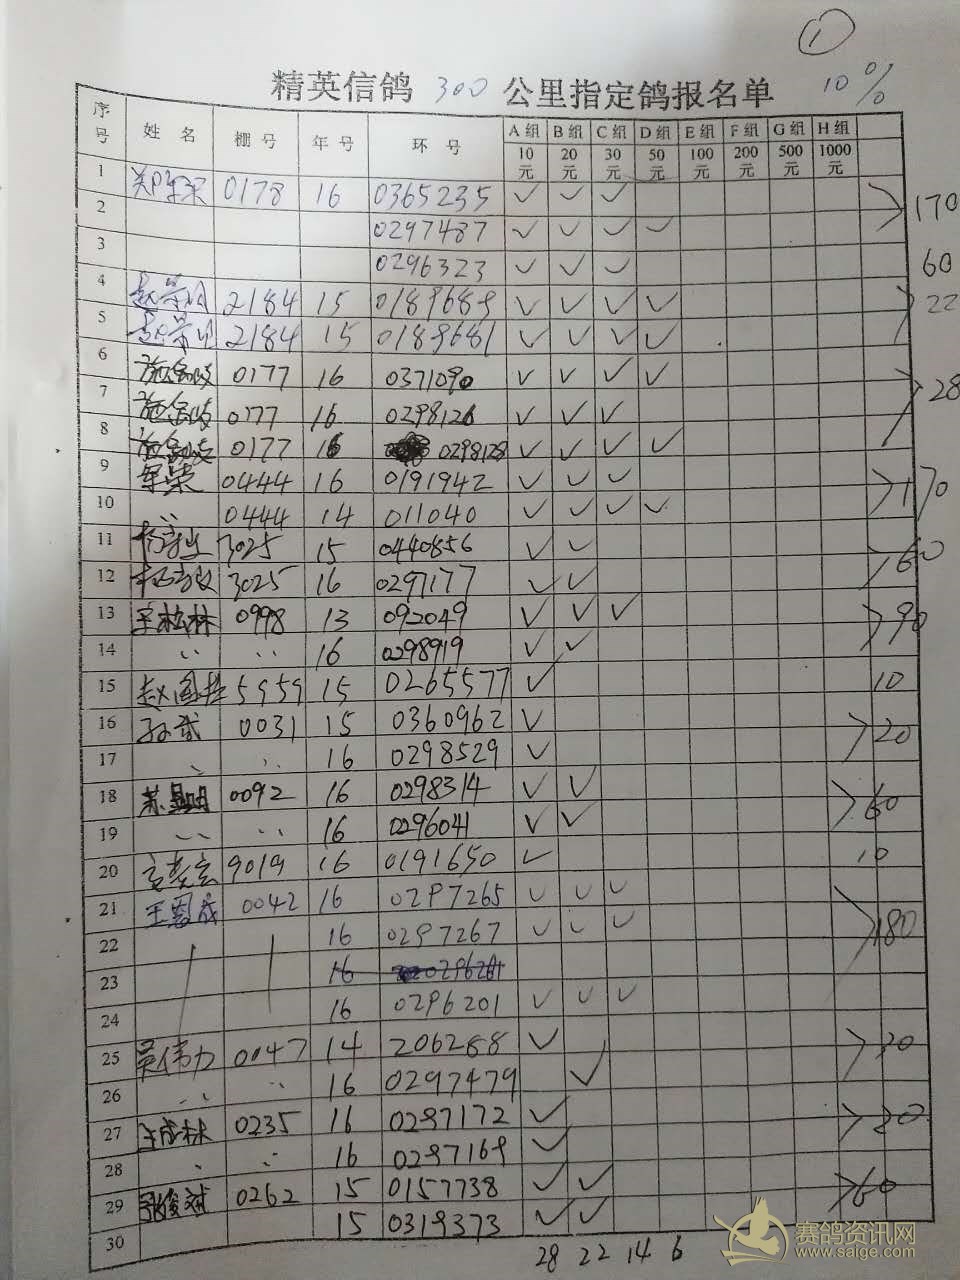 ①
精英信鸽 300 公里指定鸽报名单 10%
序号 姓名 棚号 年号 环号 A组 10元 B组 20元 C组 30元 D组 50元 E组 100元 F组 200元 G组 500元 H组 1000元
1 0178 16 0365235 ✓ ✓ ✓
2 0297487 ✓ ✓ ✓ ✓ 170
3 0296323 ✓ ✓ ✓ 60
4 2184 15 0189689 ✓ ✓ ✓ ✓ 22
5 2184 15 0189681 ✓ ✓ ✓ ✓
6 0177 16 0371090 ✓ ✓ ✓ ✓ 28
7 0177 16 0298126 ✓ ✓ ✓
8 0177 16 0298128 ✓ ✓ ✓ ✓
9 0444 16 0191942 ✓ ✓ ✓ 170
10 〃 0444 14 011040 ✓ ✓ ✓ ✓
11 3025 15 0440856 ✓ ✓ 60
12 3025 16 0297177 ✓ ✓
13 李松林 0998 13 092049 ✓ ✓ ✓ 90
14 〃 〃 16 0298919 ✓ ✓
15 5959 15 0265577 ✓ 10
16 孙武 0031 15 0360962 ✓ 20
17 〃 〃 16 0298529 ✓
18 0092 16 0298314 ✓ ✓ 60
19 〃 〃 16 0296041 ✓ ✓
20 9019 16 0191650 ✓ 10
21 0042 16 0297265 ✓ ✓ ✓
22 16 0297267 ✓ ✓ ✓ 180
23 16
24 16 0296201 ✓ ✓ ✓
25 吴伟力 0047 14 206288 ✓ 30
26 〃 〃 16 0297479 ✓
27 0235 16 0297172 ✓ 20
28 〃 〃 16 0297169 ✓
29 张俊斌 0262 15 0157738 ✓ ✓ 60
30 15 0319373 ✓ ✓
28 22 14 6
赛鸽资讯网
www.saige.com